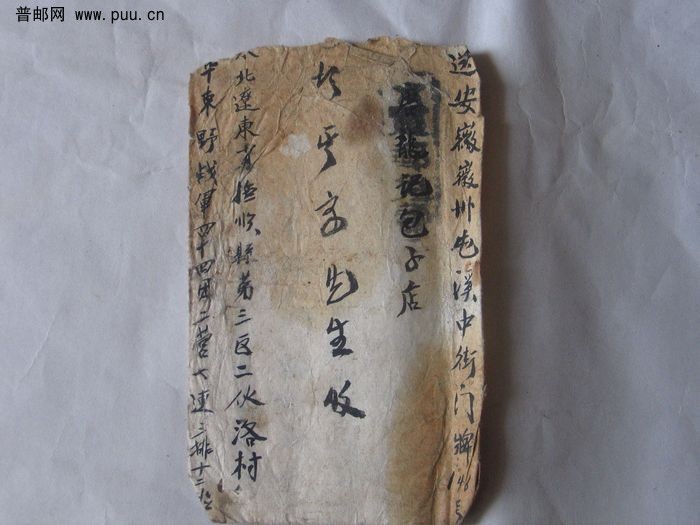 普邮网 www.puu.cn
送安徽徽州屯溪中街门牌146号
记包子店
先生收
北辽东省抚顺县第三区二伙洛村
东野战军四十四团二营七连三排十二